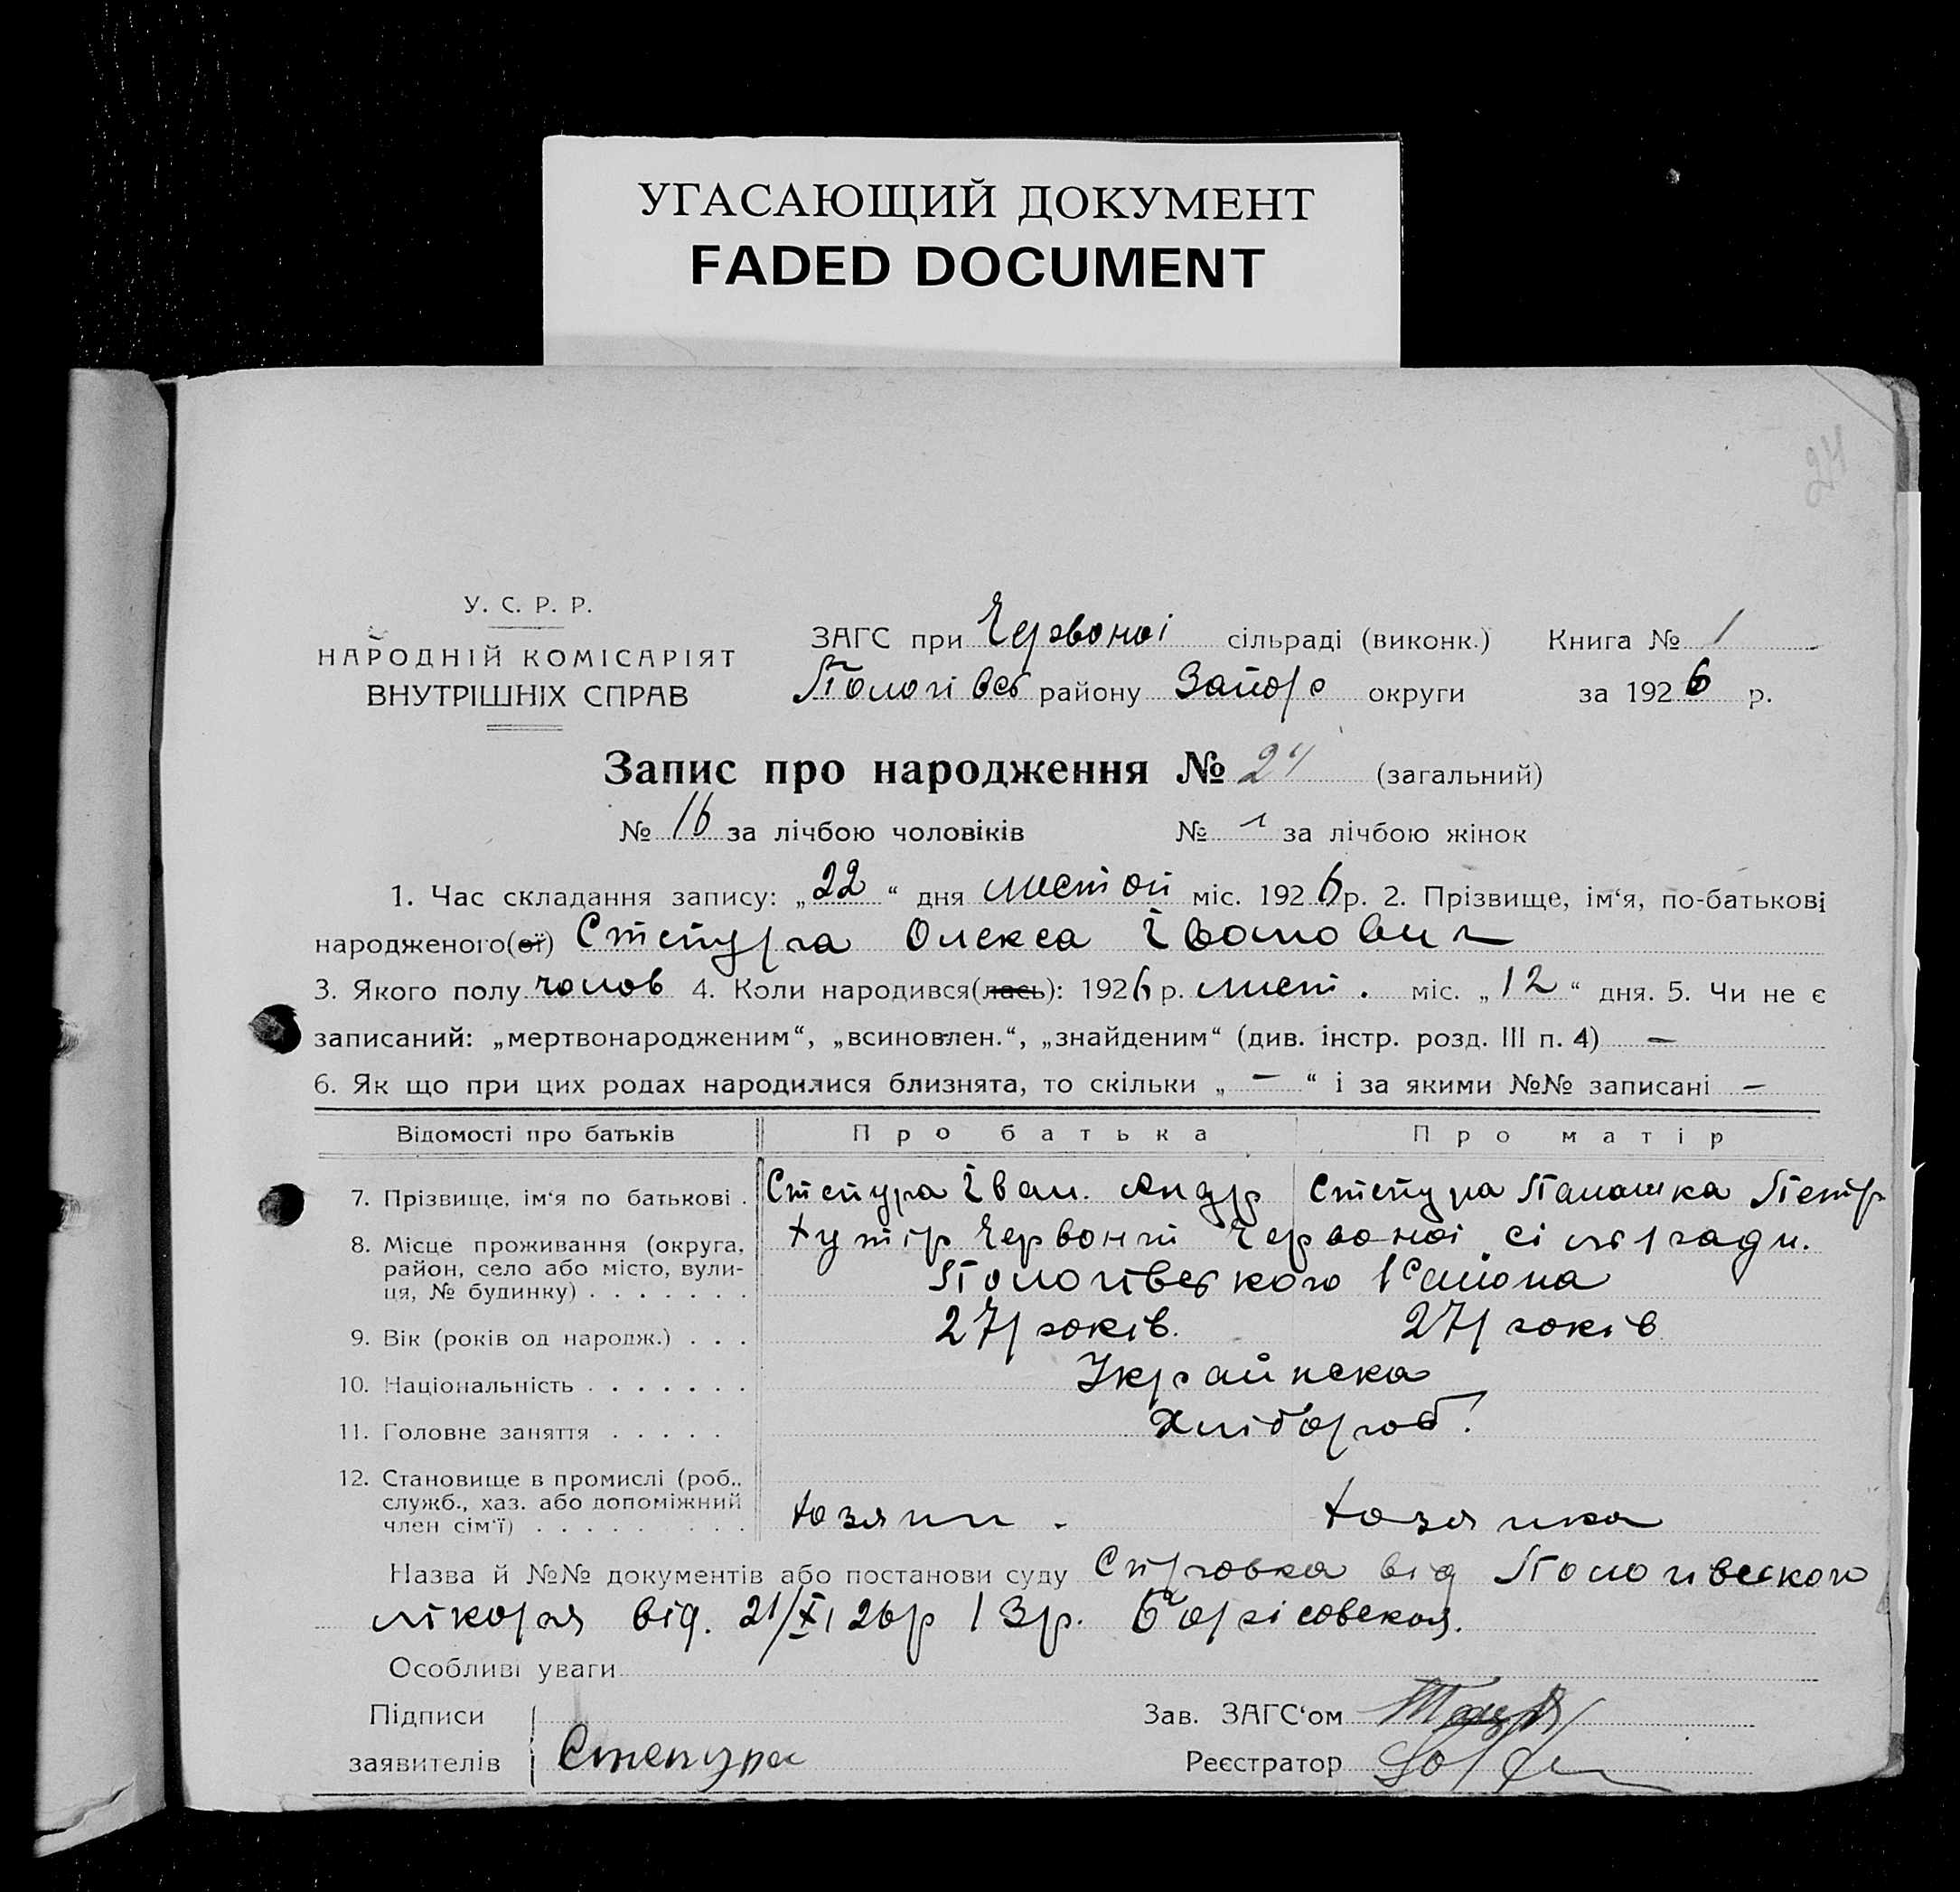 УГАСАЮЩИЙ ДОКУМЕНТ
FADED DOCUMENT
24
У. С. Р. Р.
НАРОДНІЙ КОМІСАРІЯТ
ВНУТРІШНІХ СПРАВ
ЗАГС при Червоної сільраді (виконк.) Книга № 1
Пологівсь району Запор округи за 1926 р.
Запис про народження № 24 (загальний)
№ 16 за лічбою чоловіків № за лічбою жінок
1. Час складання запису: „22“ дня листоп міс. 1926 р. 2. Прізвище, ім‘я, по-батькові
народженого(ої) Степура Олекса Іванович
3. Якого полу чолов 4. Коли народився(лась): 1926 р. лист. міс. „12“ дня. 5. Чи не є
записаний: „мертвонародженим“, „всиновлен.“, „знайденим“ (див. інстр. розд. III п. 4) —
6. Як що при цих родах народилися близнята, то скільки „ — “ і за якими №№ записані —
Відомості про батьків Про батька Про матір
7. Прізвище, ім‘я по батькові . Степура Іван. Андр Степура Палашка Петр
8. Місце проживання (округа, район, село або місто, вулиця, № будинку) . . . . . . . Хутір Червоний Червоної сільради.
Пологівського Района
9. Вік (років од народж.) . . . 27 років. 27 років
10. Національність . . . . . . . Українска
11. Головне заняття . . . . . Хлібороб.
12. Становище в промислі (роб., служб., хаз. або допоміжний член сім‘ї) . . . . . . . . Хозяин. Хозяика
Назва й №№ документів або постанови суду Справка від Пологівского
лікоря від. 21/XI 26р Борісовская.
Особливі уваги
Підписи Зав. ЗАГС‘ом
заявителів Степура Реєстратор